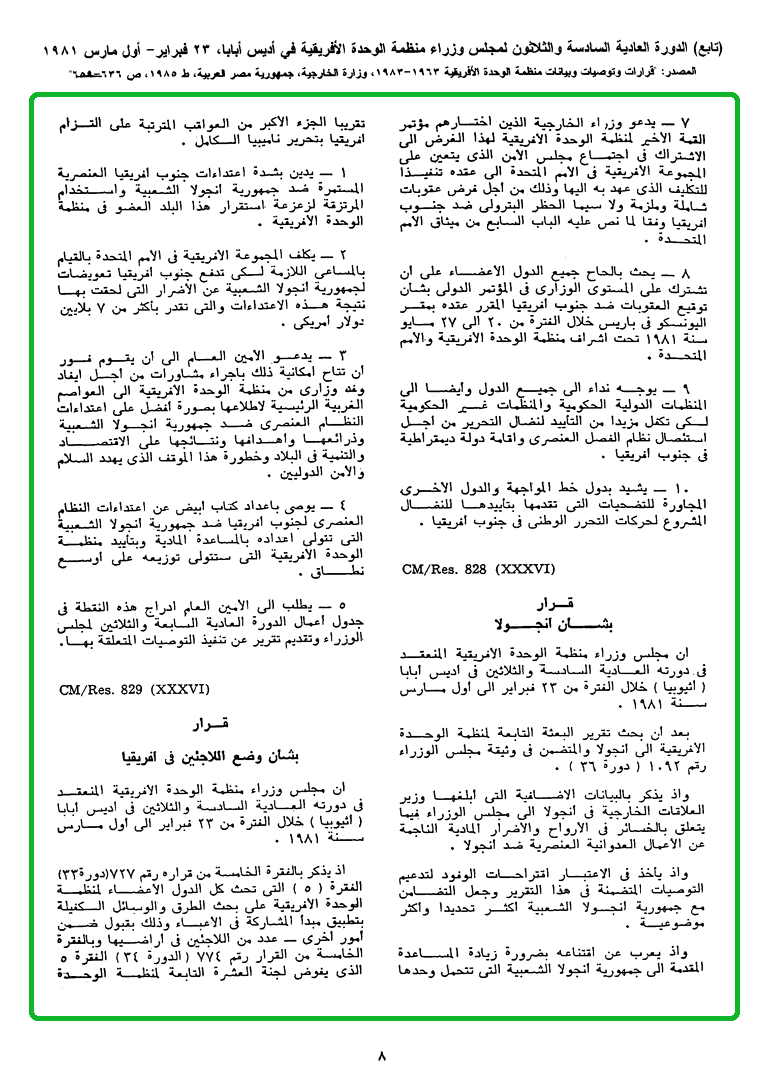 (تابع) الدورة العادية السادسة والثلاثون لمجلس وزراء منظمة الوحدة الأفريقية في أديس أبابا، ٢٣ فبراير- أول مارس ١٩٨١
المصدر: "قرارات وتوصيات وبيانات منظمة الوحدة الأفريقية ١٩٦٣-١٩٨٣"، وزارة الخارجية، جمهورية مصر العربية، ط ١٩٨٥، ص ٦٣٦
٧ — يدعو وزراء الخارجية الذين اختارهم مؤتمر
القمة الأخير لمنظمة الوحدة الأفريقية لهذا الغرض الى
الاشتراك فى اجتماع مجلس الأمن الذى يتعين على
المجموعة الافريقية فى الأمم المتحدة الى عقده تنفيذا
للتكليف الذى عهد به اليها وذلك من أجل فرض عقوبات
شاملة وملزمة ولا سيما الحظر البترولى ضد جنوب
افريقيا وفقا لما نص عليه الباب السابع من ميثاق الأمم
المتحدة .
٨ — يحث بالحاح جميع الدول الأعضاء على أن
تشترك على المستوى الوزارى فى المؤتمر الدولى بشأن
توقيع العقوبات ضد جنوب أفريقيا المقرر عقده بمقر
اليونسكو فى باريس خلال الفترة من ٢٠ الى ٢٧ مايو
سنة ١٩٨١ تحت اشراف منظمة الوحدة الأفريقية والأمم
المتحدة .
٩ — يوجه نداء الى جميع الدول وأيضا الى
المنظمات الدولية الحكومية والمنظمات غير الحكومية
لكى تكفل مزيدا من التأييد لنضال التحرير من أجل
استئصال نظام الفصل العنصرى واقامة دولة ديمقراطية
فى جنوب افريقيا .
١٠ — يشيد بدول خط المواجهة والدول الأخرى
المجاورة للتضحيات التى تقدمها بتأييدها للنضال
المشروع لحركات التحرر الوطنى فى جنوب أفريقيا .
CM/Res. 828 (XXXVI)
قرار
بشأن انجولا
ان مجلس وزراء منظمة الوحدة الأفريقية المنعقد
فى دورته العادية السادسة والثلاثين فى أديس أبابا
( أثيوبيا ) خلال الفترة من ٢٣ فبراير الى أول مارس
سنة ١٩٨١ .
بعد أن بحث تقرير البعثة التابعة لمنظمة الوحدة
الأفريقية الى انجولا والمتضمن فى وثيقة مجلس الوزراء
رقم ١٠٩٢ ( دورة ٣٦ ) .
واذ يذكر بالبيانات الاضافية التى أبلغها وزير
العلاقات الخارجية فى أنجولا الى مجلس الوزراء فيما
يتعلق بالخسائر فى الأرواح والأضرار المادية الناجمة
عن الأعمال العدوانية العنصرية ضد أنجولا .
واذ يأخذ فى الاعتبار اقتراحات الوفود لتدعيم
التوصيات المتضمنة فى هذا التقرير وجعل التضامن
مع جمهورية أنجولا الشعبية أكثر تحديدا وأكثر
موضوعية .
واذ يعرب عن اقتناعه بضرورة زيادة المساعدة
المقدمة الى جمهورية أنجولا الشعبية التى تتحمل وحدها
تقريبا الجزء الأكبر من العواقب المترتبة على التزام
افريقيا بتحرير ناميبيا الكامل .
١ — يدين بشدة اعتداءات جنوب افريقيا العنصرية
المستمرة ضد جمهورية أنجولا الشعبية واستخدام
المرتزقة لزعزعة استقرار هذا البلد العضو فى منظمة
الوحدة الأفريقية .
٢ — يكلف المجموعة الافريقية فى الأمم المتحدة بالقيام
بالمساعى اللازمة لكى تدفع جنوب افريقيا تعويضات
لجمهورية أنجولا الشعبية عن الأضرار التى لحقت بها
نتيجة هذه الاعتداءات والتى تقدر بأكثر من ٧ بلايين
دولار أمريكى .
٣ — يدعو الأمين العام الى أن يقوم فور
أن تتاح امكانية ذلك باجراء مشاورات من أجل ايفاد
وفد وزارى من منظمة الوحدة الأفريقية الى العواصم
الغربية الرئيسية لاطلاعها بصورة أفضل على اعتداءات
النظام العنصرى ضد جمهورية أنجولا الشعبية
وذرائعها وأهدافها ونتائجها على الاقتصاد
والتنمية فى البلاد وخطورة هذا الموقف الذى يهدد السلام
والأمن الدوليين .
٤ — يوصى باعداد كتاب أبيض عن اعتداءات النظام
العنصرى لجنوب افريقيا ضد جمهورية أنجولا الشعبية
التى تتولى اعداده بالمساعدة المادية وبتأييد منظمة
الوحدة الأفريقية التى ستتولى توزيعه على أوسع
نطاق .
٥ — يطلب الى الأمين العام ادراج هذه النقطة فى
جدول أعمال الدورة العادية السابعة والثلاثين لمجلس
الوزراء وتقديم تقرير عن تنفيذ التوصيات المتعلقة بها.
CM/Res. 829 (XXXVI)
قرار
بشأن وضع اللاجئين فى أفريقيا
ان مجلس وزراء منظمة الوحدة الأفريقية المنعقد
فى دورته العادية السادسة والثلاثين فى أديس أبابا
( أثيوبيا ) خلال الفترة من ٢٣ فبراير الى أول مارس
سنة ١٩٨١ .
اذ يذكر بالفقرة الخامسة من قراره رقم ٧٢٧(دورة٣٣)
الفقرة ( ٥ ) التى تحث كل الدول الأعضاء لمنظمة
الوحدة الأفريقية على بحث الطرق والوسائل الكفيلة
بتطبيق مبدأ المشاركة فى الأعباء وذلك بقبول ضمن
أمور أخرى — عدد من اللاجئين فى أراضيها وبالفقرة
الخامسة من القرار رقم ٧٧٤ (الدورة ٣٤) الفقرة ٥
الذى يفوض لجنة العشرة التابعة لمنظمة الوحدة
٨